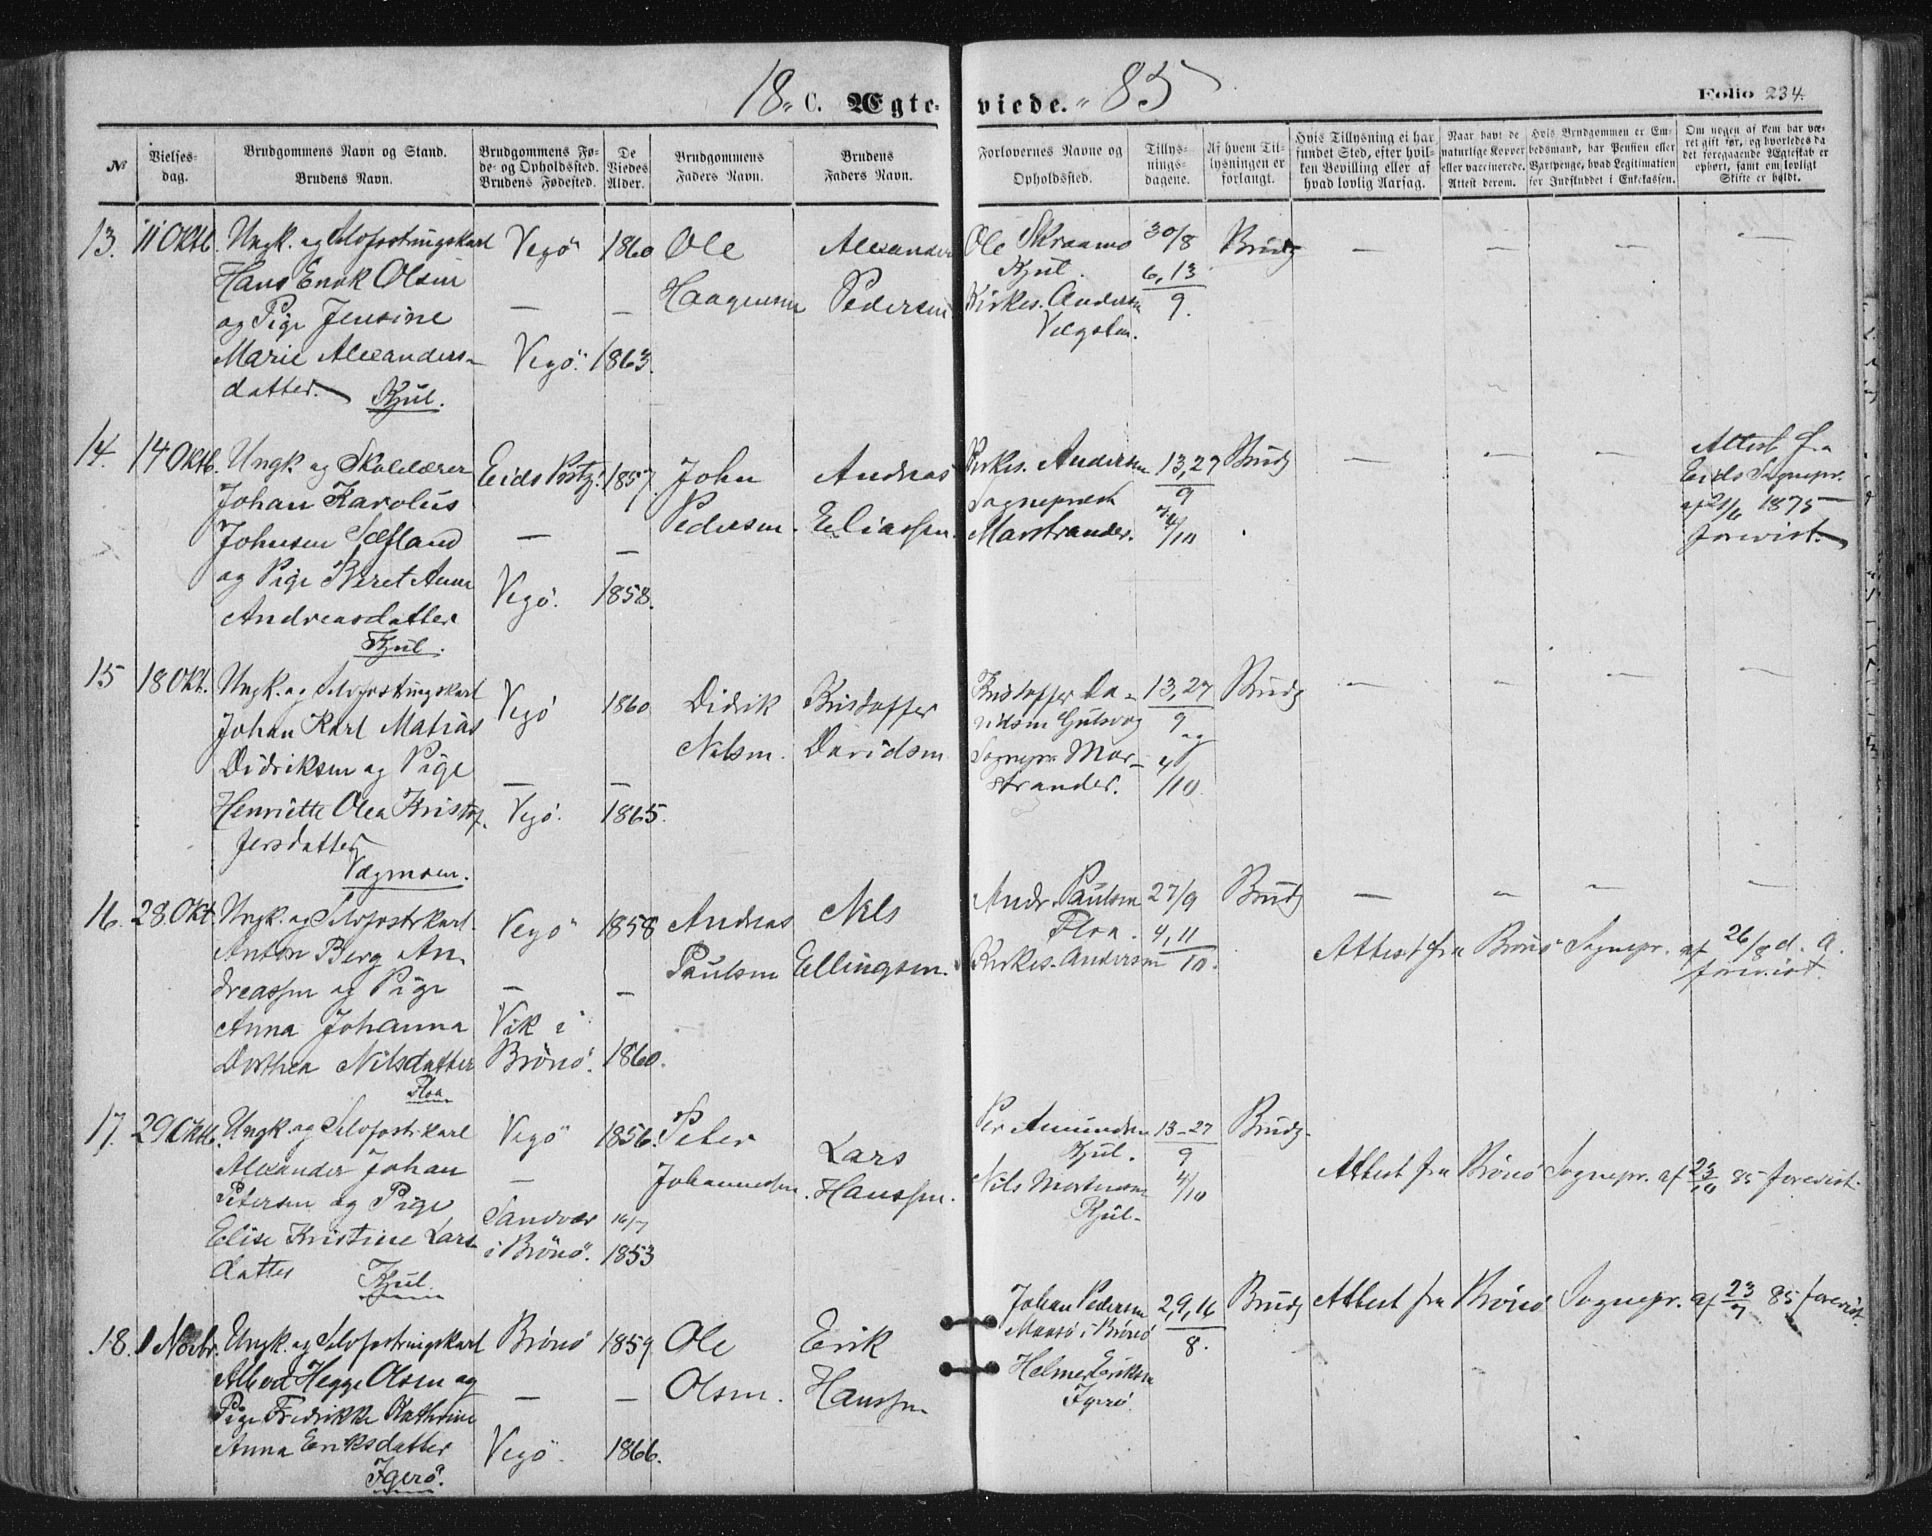 18 C. Ægteviede. 85
Folio 234.
№
Vielsesdag.
Brudgommens Navn og Stand.
Brudens Navn.
Brudgommens Føde- og Opholdssted.
Brudens Fødested.
De Viedes Alder.
Brudgommens Faders Navn.
Brudens Faders Navn.
Forlovernes Navne og Opholdssted.
Tillysningsdagene.
Af hvem Tillysningen er forlangt.
Hvis Tillysning ei har fundet Sted, efter hvilken Bevilling eller af hvad lovlig Aarsag.
Naar havt de naturlige Kopper eller vaccinerede. Attest derom.
Hvis Brudgommen er Embedsmand, har Pension eller Vartpenge, hvad Legitimation for Indskuddet i Enkekassen.
Om nogen af dem har været gift før, og hvorledes da det foregaaende Ægteskab er ophørt, samt om lovligt Skifte er holdt.
13. 11 Oktb. Ungk. og Selvfostringskarl
Hans Enok Olsen
og Pige Jensine
Marie Alexandersdatter. Kjul.
Vegø
Vegø.
1860
1863.
Ole Haagensen
Alexander Pedersen
Ole Skraamo
Kjul.
Kirkes. Andersen
Vægsten.
30/8
6, 13
9.
Brudg
14. 14 Oktb. Ungk. og Skolelærer
Johan Karolus
Johnsen Sæfland
og Pige Beret Anna
Andreasdatter
Kjul.
Eids
Vegø.
1857.
1858.
John Pedersen.
Andreas Eliassen.
Kirkes. Andersen
Sogneprest
Marstrander.
13, 27
9
4/10
Brudg
Attest fra
Eids Sognepr.
af 21/6 1875
forevist.
15 18 Okt. Ungk. og Selvfostringskarl
Johan Karl Matias
Didriksen og Pige
Henriette Olea Kristoffersdatter
Vægmoen.
Vegø
Vegø.
1860
1865.
Didrik Nilsen.
Kristoffer Davidsen
Kristoffer Davidsen Gulsvog
Sognepr. Marstrander.
13, 27
9
og
4/10.
Brudg
16. 28. Okt. Ungk. og Selvfostrkarl
Anton Berg Andreassen og Pige
Anna Johanna
Dorthea Nilsdatter
Floa
Vegø
Vik i
Brønø.
1858
1860.
Andreas Paulsen
Nils Ellingsen.
Andr. Paulsen
Floa.
Kirkes. Andersen
27/9
4, 11
10.
Brudg
Attest fra Brønø Sognepr. af 26/8 d. A.
forevist.
17. 29 Oktb. Ungk. og Selvfostrkarl
Alexander Johan
Petersen og Pige
Elise Kristine Larsdatter
Kjul.
Vegø
Sandvær
i Brønø.
1856.
16/7
1853
Peter Johannessen.
Lars Hanssen.
Per Amundsen
Kjul.
Nils Mortensen
Kjul.
13-27
9
4/10
Brudg.
Attest fra Brønø Sognepr. af 23/10 85 forevist.
18. 1 Novbr. Ungk. og Selvfostringskarl
Albert Hegge Olsen og
Pige Fredrikke Kathrine
Anna Eriksdatter
Igerø.
Brønø
Vegø.
1859
1866.
Ole Olsen.
Erik Hanssen
Johan Pedersen
Maasø i Brønø
Helmer Eriksen
Igerø.
2, 9, 16
8.
Brudg
Attest fra Brønø Sognepr. af 23/7 85 forevist.